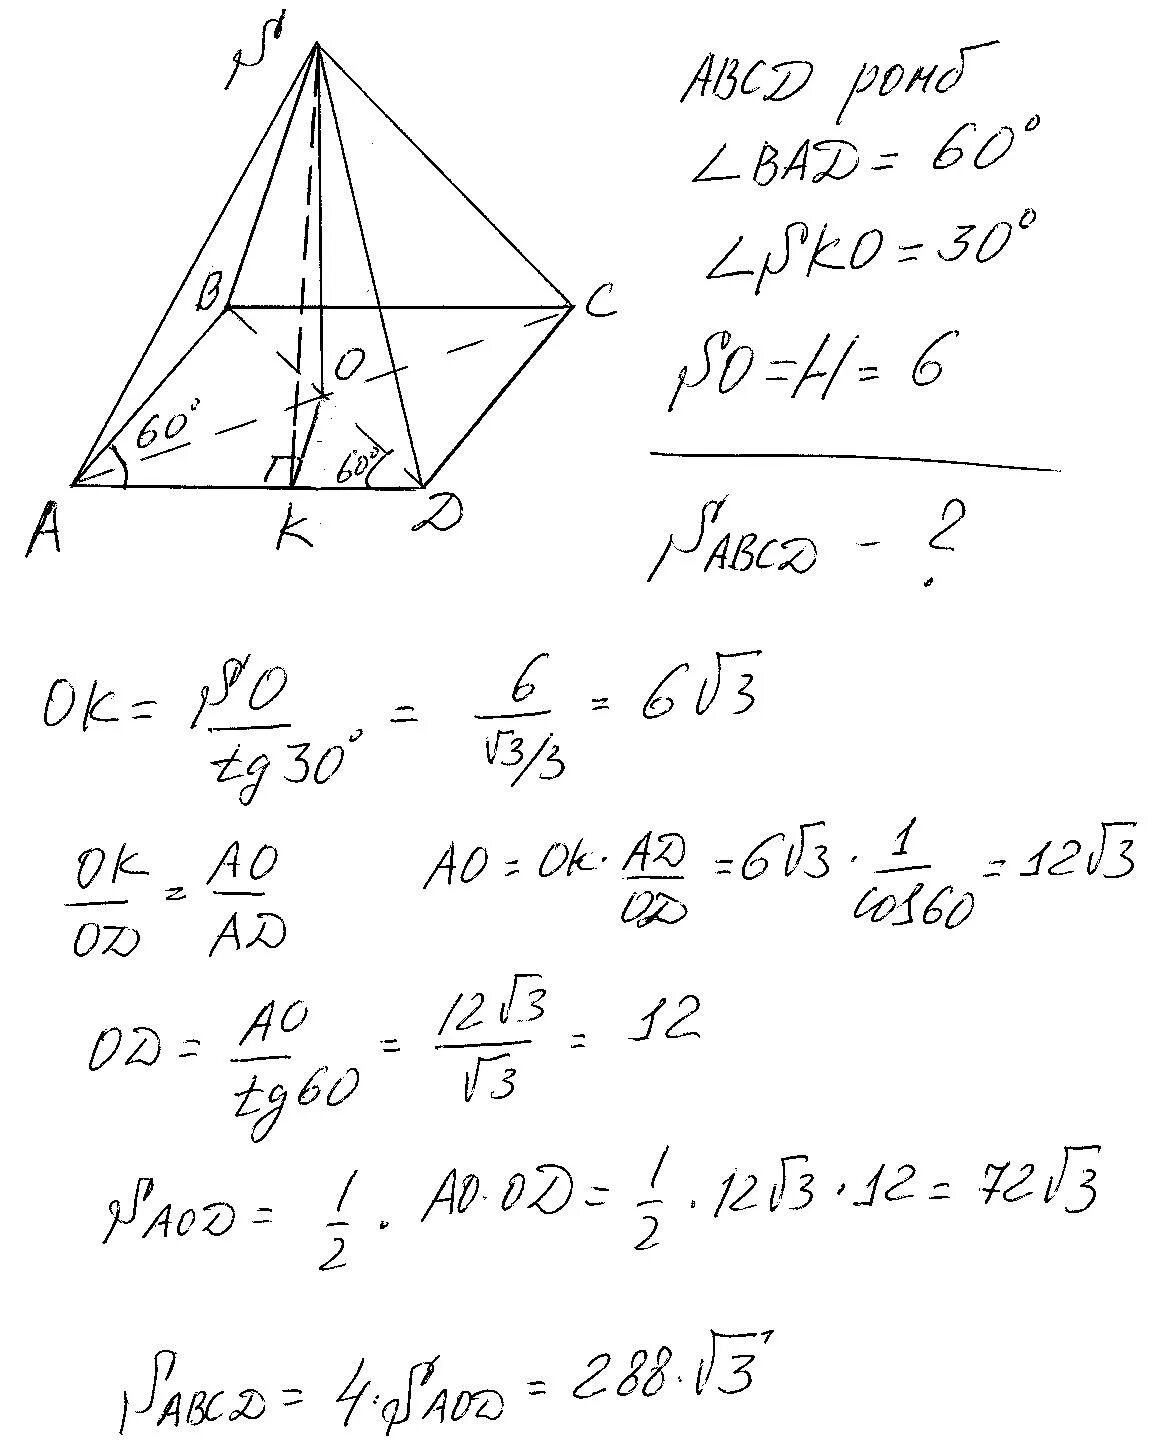 S
B
C
O
60°
60°
A
K
D
ABCD ромб
∠BAD = 60°
∠SKO = 30°
SO = H = 6
S_ABCD - ?
OK = SO / tg 30° = 6 / (√3/3) = 6√3
OK / OD = AO / AD
AO = OK · AD / OD = 6√3 · 1 / cos 60 = 12√3
OD = AO / tg 60 = 12√3 / √3 = 12
S_AOD = 1/2 · AO · OD = 1/2 · 12√3 · 12 = 72√3
S_ABCD = 4 · S_AOD = 288 · √3